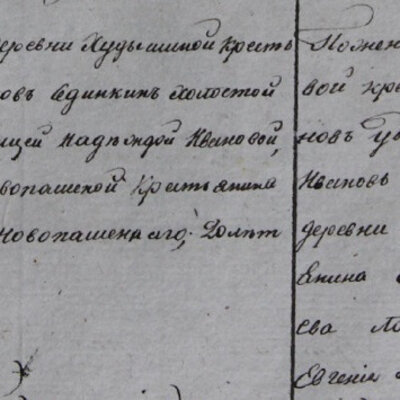 деревни Худышиной кресть
овъ Единкинъ холостой
ицей Надѣждой Ивановой,
вопашеной Крестьянина
Новопашенаго, Долѣт
Пожен
вой кре
новъ
Ивановъ
деревни
янина
ева
Евгенiе